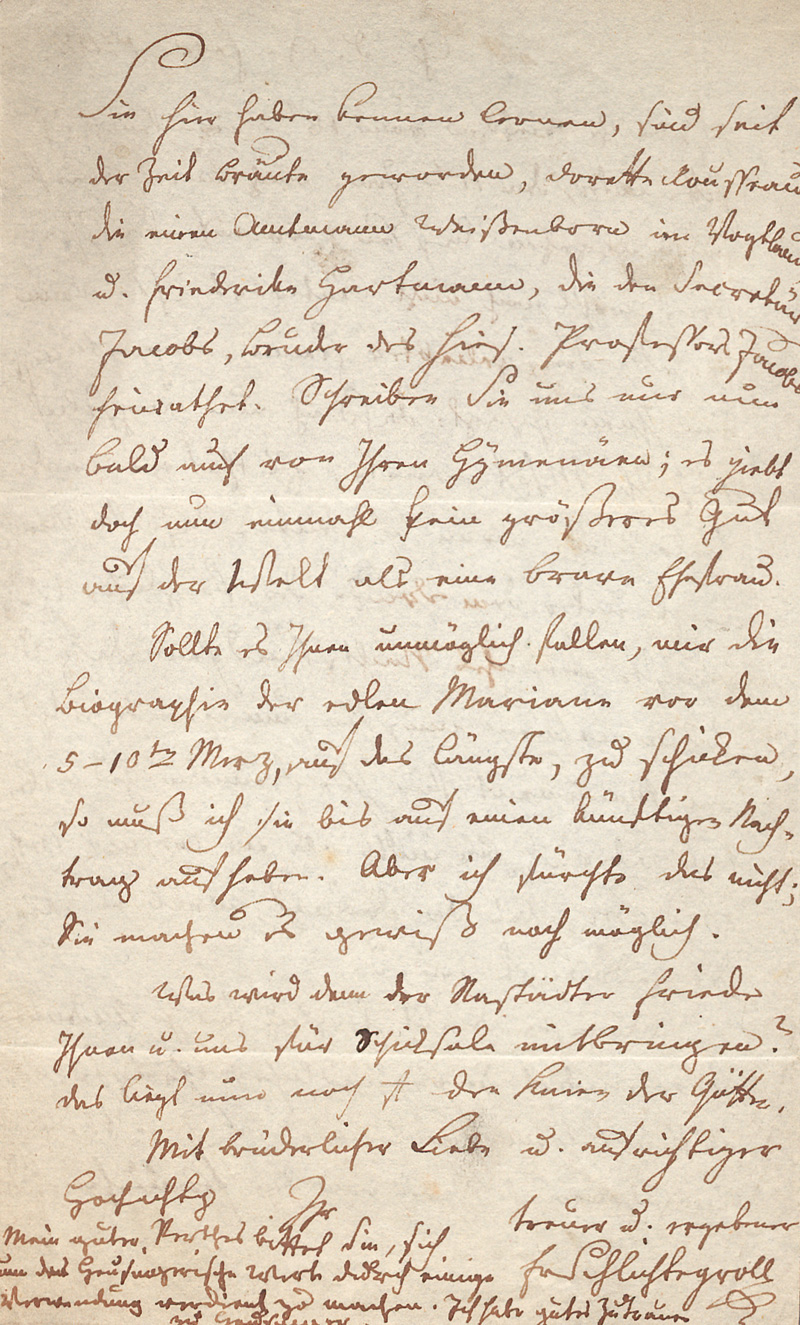 Sie hier haben kennen lernen, sind seit
der Zeit Bräute geworden, Dorette Rousseau
die einen Amtmann Weißenborn im Vogtland
u. Friederike Hartmann, die den Secretär
Jacobs, Bruder des hies. Professors Jacobs
heirathet. Schreiben Sie uns nur nun
bald auch von Ihren Hymenäen; es giebt
doch nun einmahl kein größeres Gut
auf der Welt als eine brave Ehefrau.
Sollte es Ihnen unmöglich fallen, mir die
Biographie der edlen Mariane vor dem
5–10ten Merz, auf das längste, zu schicken,
so muß ich sie bis auf einen künftigen Nach-
trag aufheben. Aber ich fürchte das nicht;
Sie machen es gewiß noch möglich.
Was wird denn der Rastädter Friede
Ihnen u. uns für Schicksale mitbringen?
das liegt nun noch in den Knien der Götter.
Mit brüderlicher Liebe u. aufrichtiger
Hochachtg Ihr
treuer u. ergebener
Fr Schlichtegroll
Mein guter Perthes bittet Sie, sich
um das Heusingerische Werk durch einige
Verwendung verdient zu machen. Ich habe gutes Zutrauen
zu